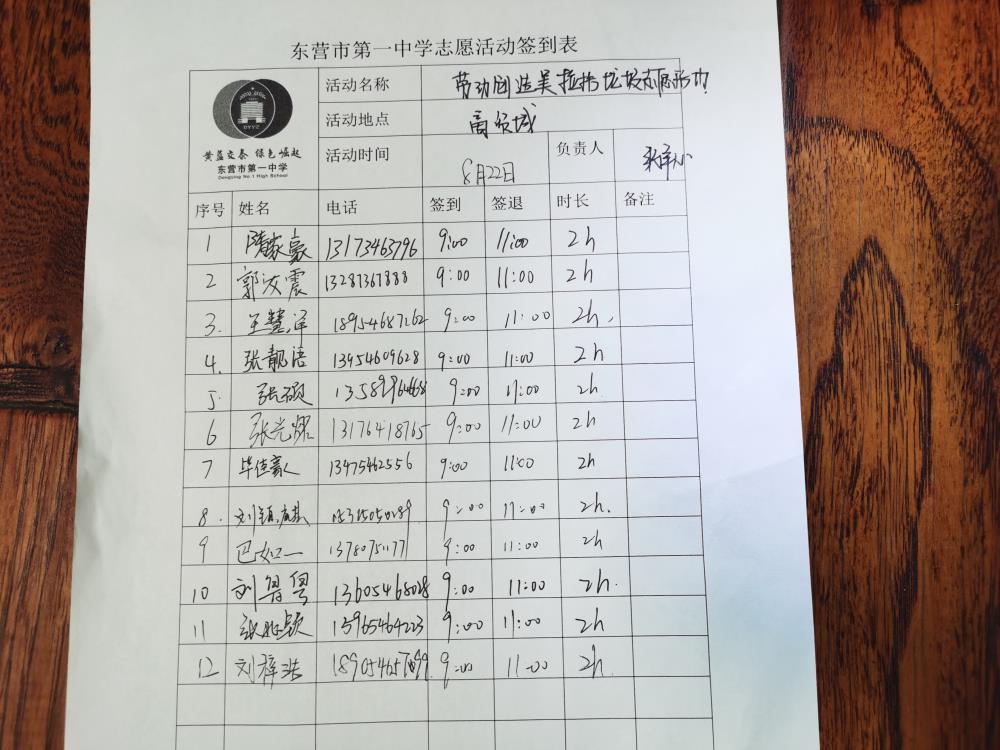 东营市第一中学志愿活动签到表
活动名称 劳动创造美 垃圾
活动地点
活动时间 8月22日 负责人
黄蓝交泰 绿色崛起
东营市第一中学
Dongying No.1 High School
序号 姓名 电话 签到 签退 时长 备注
1 隋家豪 13173463796 9:00 11:00 2h
2 郭汶震 13287367888 9:00 11:00 2h
3. 王慧泽 18954687262 9:00 11:00 2h.
4. 张靓洁 13954609628 9:00 11:00 2h
5 张硕 13589964668 9:00 11:00 2h
6 张光耀 13176418765 9:00 11:00 2h
7 毕佳豪 13475462556 9:00 11:00 2h
8. 9:00 11:00 2h.
9 巴如一 13780751177 9:00 11:00 2h
10 刘 13605468028 9:00 11:00 2h.
11 15965464223 9:00 11:00 2h
12 刘梓浩 9:00 11:00 2h.